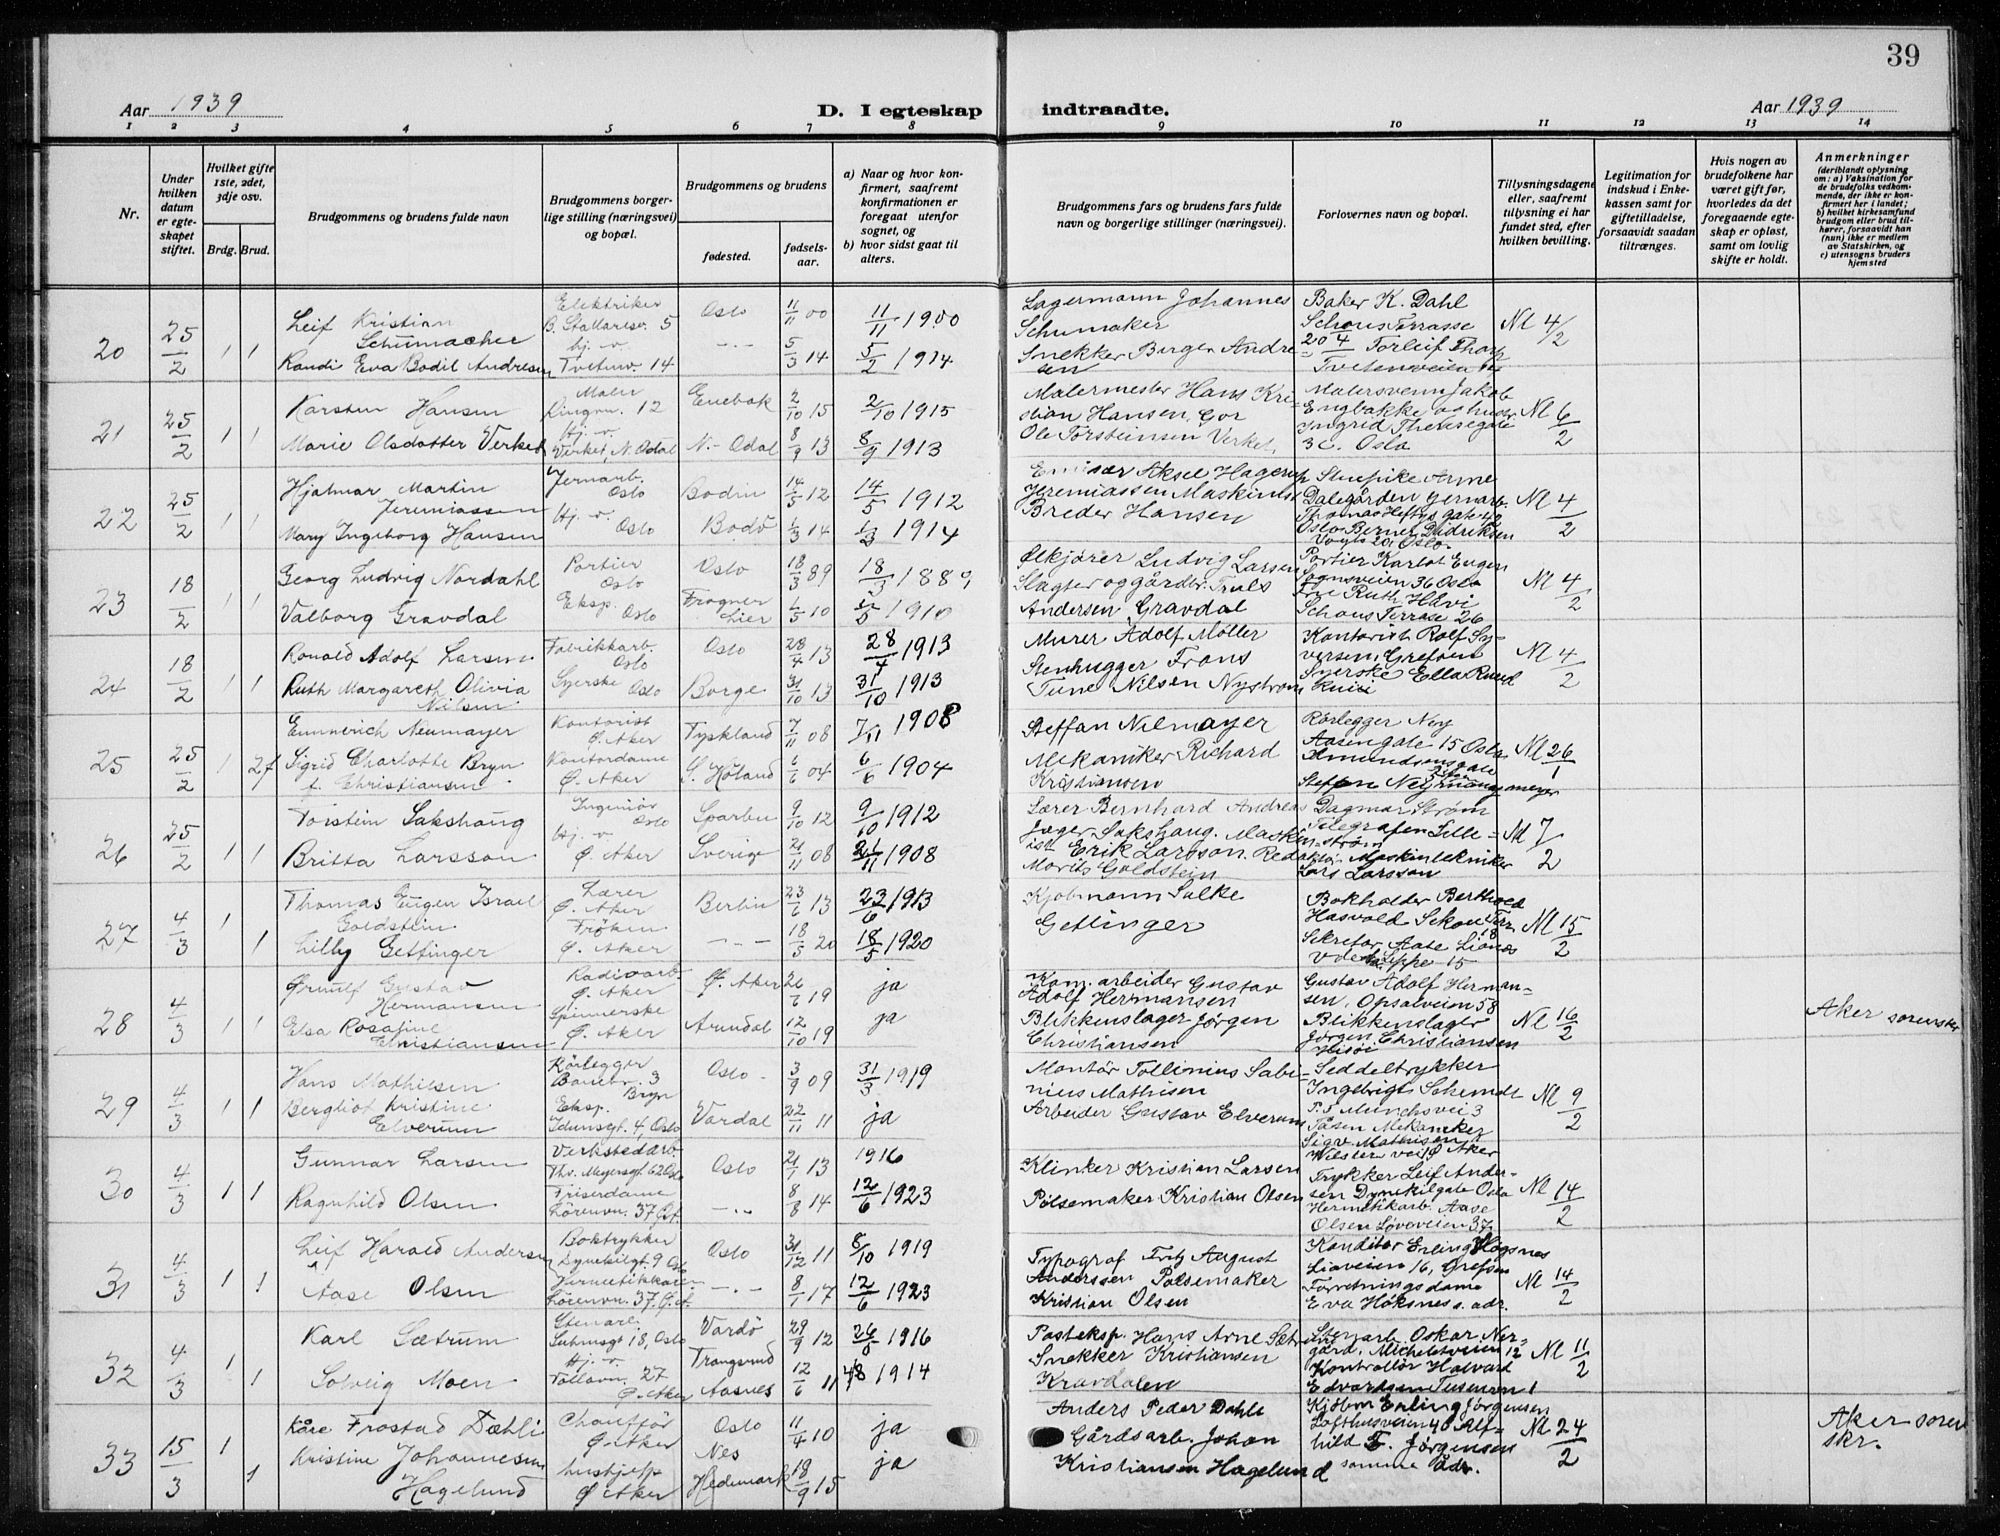 39
Aar 1939
D. I egteskap
indtraadte.
Aar 1939
1 2 3 4 5 6 7 8 9 10 11 12 13 14
Nr.
Under hvilken datum er egteskapet stiftet.
Hvilket gifte 1ste, 2det, 3dje osv.
Brdg. Brud.
Brudgommens og brudens fulde navn
Brudgommens borgerlige stilling (næringsvei) og bopæl.
Brudgommens og brudens
fødested.
fødselsaar.
a) Naar og hvor konfirmert, saafremt konfirmationen er foregaat utenfor sognet, og
b) hvor sidst gaat til alters.
Brudgommens fars og brudens fars fulde navn og borgerlige stillinger (næringsvei).
Forlovernes navn og bopæl.
Tillysningsdagene eller, saafremt tillysning ei har fundet sted, efter hvilken bevilling.
Legitimation for indskud i Enkekassen samt for giftetilladelse, forsaavidt saadan tiltrænges.
Hvis nogen av brudefolkene har været gift før, hvorledes da det foregaaende egteskap er opløst, samt om lovlig skifte er holdt.
Anmerkninger (deriblandt oplysning om: a) Vaksination for de brudefolks vedkommende, der ikke er konfirmert her i landet; b) hvilket kirkesamfund brudgom eller brud tilhører, forsaavidt han (hun) ikke er medlem av Statskirken, og c) utensogns bruders hjemsted
20 25/2 1 1
Leif Kristian Schumacher
Elektriker
5
Oslo 11/11 00 11/11 1900
Randi Eva Bodil Andresen
Tvetenv. 14
-"- 5/3 14 5/2 1914
Lagermann Johannes Schumaker
Snekker Birger Andresen
Baker K. Dahl
Schous Terrasse
Torleif Thorp
Tvetenveien
Nl 4/2
21 25/2 1 1
Karsten Hansen
Maler
Ringvn. 12
Enebak 2/10 15 2/10 1915
Marie Olsdatter Verket
Hj. v.
Verket, N. Odal
N. Odal 8/9 13 8/9 1913
Malermester Hans Kristian Hansen, Gor
Ole Torsteinsen Verket,
Malersvenn Jakob Engbakke
Ingrid
3c. Oslo
Nl 6/2
22 25/2 1 1
Hjalmar Martin Jeremiassen
Jernarb. Oslo
Bodin 14/5 12 14/5 1912
Mary Ingeborg Hansen
Hj. v. Oslo
Bodø 1/3 14 1/3 1914
Aksel Hagerup Jeremiassen Maskinist
Breder Hansen
Arne Dalegården Jernarb.
Thomas Heftyes gate 42
Oslo Berner Didriksen
Vogts 20, Oslo
Nl 4/2
23 18/2 1 1
Georg Ludvig Nordahl
Portier Oslo
Oslo 18/3 89 18/3 1889
Valborg Gravdal
Eksp. Oslo
Frogner Lier 1/5 10 1/5 1910
Ølkjører Ludvig Larsen
Slagter og gårdbr. Truls Andersen Gravdal
Portier Karlot Eugen
Sognsveien 36 Oslo
Ruth Hævi
Schous Terrasse 26
Nl 4/2
24 18/2 1 1
Ronald Adolf Larsen
Fabrikkarb. Oslo
Oslo 28/4 13 28/4 1913
Ruth Margareth Olivia Nilsen
Syerske Oslo
Borge 31/10 13 31/10 1913
Murer Adolf Møller
Stenhugger Frans
Tune Nilsen Nystrøm
Kontorist Rolf Syversen, Grefsen
Syerske Ella Ruud
Nl 4/2
25 25/2 1 2f
Emmerich Neumayer
Kontorist Ø. Aker
Tyskland 7/11 08 7/11 1908
Sigrid Charlotte Bryn
f. Christiansen
Kontordame Ø. Aker
S. Høland 6/6 04 6/6 1904
Steffan Niemayer
Mekaniker Richard Kristiansen
Rørlegger
Aasengate 15 Oslo
Nl 26/1
26 25/2 1 1
Torstein Sakshaug
Ingeniør Oslo
Sparbu 9/10 12 9/10 1912
Britta Larsson
Hj. v. Ø. Aker
Sverige 21/11 08 21/11 1908
Lærer Bernhard Andreas Jæger Sakshaug. Maskinist Erik Larsson. Redaktør
Moritz Goldstein
Dagmar Strøm
Telegrafen Lillestrøm
Maskintekniker
Lars Larsson
Nl 7/2
27 4/3 1 1
Thomas Eugen Israel Goldstein
Lærer Ø. Aker
Berlin 23/6 13 23/6 1913
Lilly Gettinger
Frøken Ø. Aker
-"- 18/5 20 18/5 1920
Kjøbmann Salke Gettinger
Bokholder Berthold Hasvold
Sekretær Aase Lionæs
15
Nl 15/2
28 4/3 1 1
Ørnulf Gustav Hermansen
Radioarb. Ø. Aker
Ø. Aker 26/6 19 ja
Elsa Rosaline Christiansen
Spinnerske Ø. Aker
Arendal 12/10 19 ja
Kom. arbeider Gustav Adolf Hermansen
Blikkenslager Jørgen Christiansen
Gustav Adolf Hermansen, Opsalveien 58
Blikkenslager Jørgen Christiansen
Hisøi
Nl 16/2
Aker sorenskr
29 4/3 1 1
Hans Mathisen
Rørlegger
3 Bryn
Oslo 3/9 09 31/3 1919
Bergliot Kristine Elverum
Eksp.
Idunsgt. 4, Oslo
Vardal 22/11 11 ja
Montør Tollinius Sabinius Mathisen
Arbeider Gustav Elverum
Seddeltrykker
Ingebrigt
3
Mekaniker
Sigv. Mathisen
Ø. Aker
Nl 9/2
30 4/3 1 1
Gunnar Larsen
Verkstedarb.
Thv. Meyersgt. 62 Oslo
Oslo 21/1 13 1916
Ragnhild Olsen
Friserdame
Lørenvn. 37 Ø. A.
-"- 8/8 14 12/6 1923
Klinker Kristian Larsen
Pølsemaker Kristian Olsen
Trykker Leif Andersen Dynekilgate Oslo
Hermetikkarb. Aase Olsen Løvoveien 37
Nl 14/2
31 4/3 1 1
Leif Harald Andersen
Boktrykker
Dynekilgt. 9 Oslo
Oslo 31/12 11 8/10 1919
Aase Olsen
Lørenvn. 37, Ø. A.
-"- 8/1 17 12/6 1923
Typograf Fritz August Anderssen
Pølsemaker Kristian Olsen
Konditor Erling Høgsnes
Liaveien 16, Grefsen
Forretningsdame Eva Høksnes s. adr.
Nl 14/2
32 4/3 1 1
Karl Sætrum
18, Oslo
Vardø 29/9 12 26/8 1916
Solveig Moen
Hj. v.
27 Ø. Aker
Trøngsund Aasnes 12/6 11 1914
Posteksp. Hans Arne Sætrum
Snekker Kristiansen Kravdalen
Oskar Nergård, Micheletsveien 12
Kontrollør Halvard Edvardsen Tuenveien 1
Nl 11/2
33 15/3 1 1
Kåre Frostad Dæhli
Chauffør Ø. Aker
Oslo 11/4 10 ja
Kristine Johannesen Hagelund
hushjelp Ø. Aker
Nes Hedemark 18/9 15 ja
Anders Peder Dahli
Gårdsarb. Johan Kristiansen Hagelund
Kjøbm Erling Jørgensen
Lofthusveien 40 Alfhild F. Jørgensen
samme adr.
Nl 24/2
Aker sorenskr.